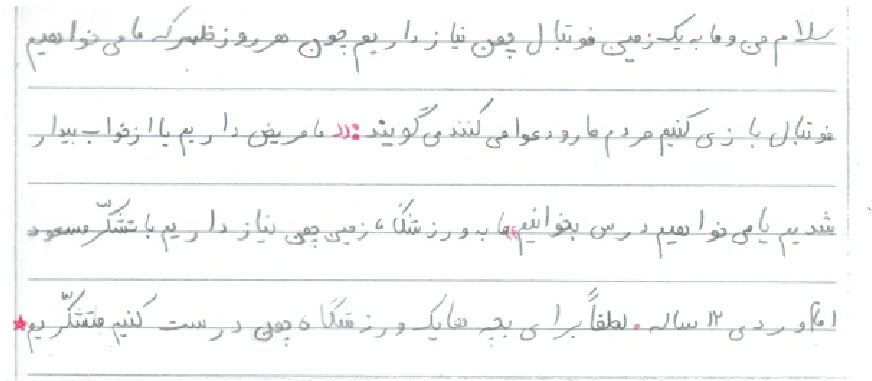 سلام من و ما به یک زمین فوتبال چمن نیاز داریم چون هر روز ظهر که ما می خواهیم
فوتبال بازی کنیم مردم ما رو دعوا می کنند می گویند:(( ما مریض داریم یا از خواب بیدار
شدیم یا می خواهیم درس بخوانیم)) ما به ورزشگاه، زمین چمن نیاز داریم با تشکّر مسعود
اماموردی ۱۲ ساله. لطفاً برای بچه ها یک ورزشگاه چمن درست کنیم متشکّریم*